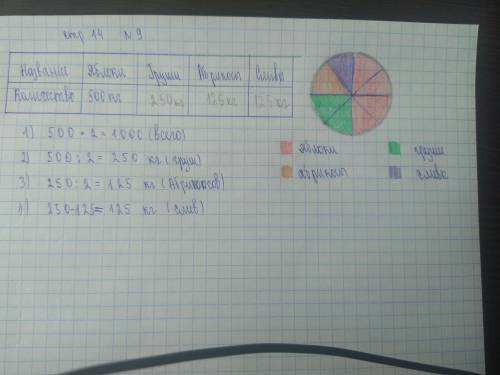 стр 14 №9
Название Яблоки Груши Абрикосы Сливы
Количество 500 кг 250 кг 125 кг 125 кг
1) 500 * 2 = 1000 (всего)
2) 500 : 2 = 250 кг (груш)
3) 250 : 2 = 125 кг (Абрикосов)
4) 250-125= 125 кг (слив)
яблоки груши
абрикосы слива